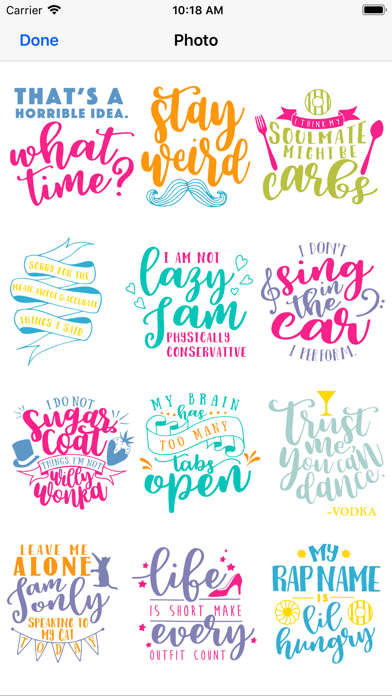 Carrier 10:18 AM
Done Photo
THAT'S A
HORRIBLE IDEA.
what
time?
stay
weird
I THINK MY
SOULMATE
MIGHT BE
carbs
SORRY FOR THE
MEAN, AWFUL & ACCURATE
THINGS I SAID
I AM NOT
lazy
I am
PHYSICALLY
CONSERVATIVE
I DON'T
sing
in the
car
I PERFORM.
I DO NOT
Sugar
Coat
THINGS, I'M NOT
willy
wonka
MY BRAIN
has
TOO MANY
tabs
open
Trust
me,
you can
dance.
-VODKA
LEAVE ME
ALONE
I am
only
SPEAKING TO
MY CAT
TODAY
life
IS SHORT MAKE
every
OUTFIT COUNT
MY
RAP NAME
is
lil
hungry